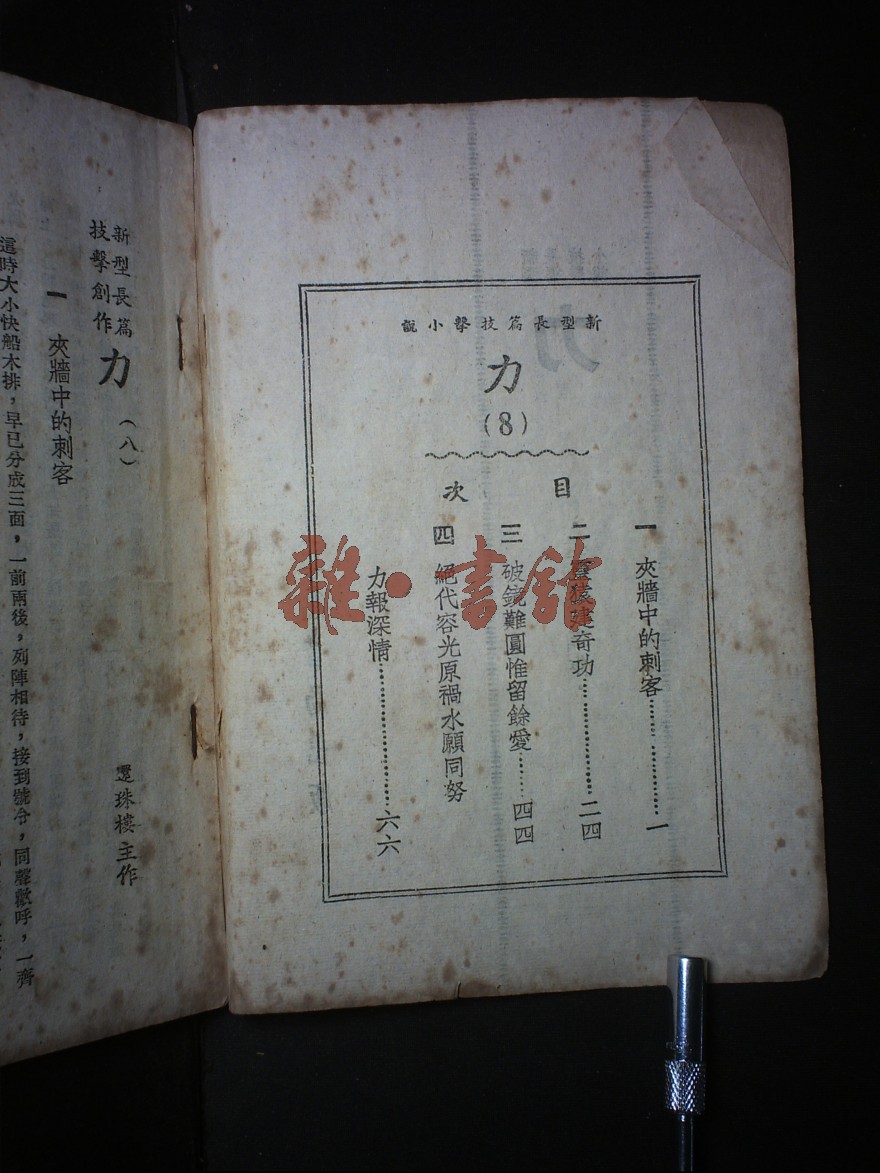 新型長篇技擊小説
力
(8)
目次
一 夾牆中的刺客…………………一
二 靈猿建奇功…………………二四
三 破鏡難圓惟留餘愛………四四
四 絕代容光原禍水願同努
力報深情…………………六六
雜·書館
新型長篇
技擊創作
力
(八)
還珠樓主作
一 夾牆中的刺客
這時大小快船木排，早已分成三面，一前兩後，列陣相待，接到號令，同聲歡呼，一齊